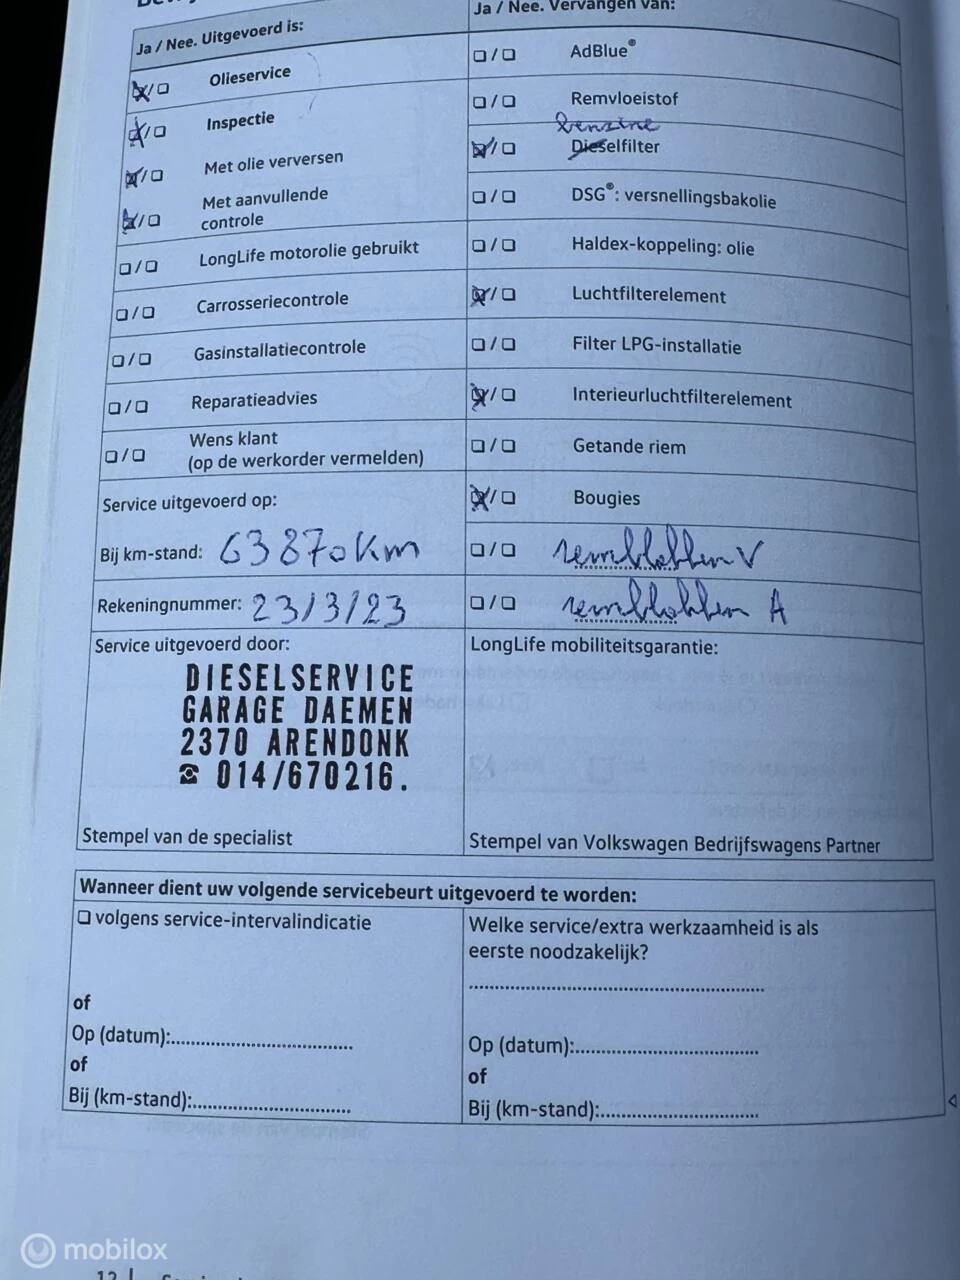 Ja / Nee. Uitgevoerd is:
Olieservice
Inspectie
Met olie verversen
Met aanvullende
controle
LongLife motorolie gebruikt
Carrosseriecontrole
Gasinstallatiecontrole
Reparatieadvies
Wens klant
(op de werkorder vermelden)
Service uitgevoerd op:
Bij km-stand: 63870 km
Rekeningnummer: 23/3/23
Service uitgevoerd door:
DIESELSERVICE
GARAGE DAEMEN
2370 ARENDONK
☎ 014/670216.
Stempel van de specialist
Ja / Nee. Vervangen van:
AdBlue®
Remvloeistof
benzine
Dieselfilter
DSG®: versnellingsbakolie
Haldex-koppeling: olie
Luchtfilterelement
Filter LPG-installatie
Interieurluchtfilterelement
Getande riem
Bougies
remblokken V
remblokken A
LongLife mobiliteitsgarantie:
Stempel van Volkswagen Bedrijfswagens Partner
Wanneer dient uw volgende servicebeurt uitgevoerd te worden:
volgens service-intervalindicatie
of
Op (datum):
of
Bij (km-stand):
Welke service/extra werkzaamheid is als
eerste noodzakelijk?
Op (datum):
of
Bij (km-stand):
mobilox
12